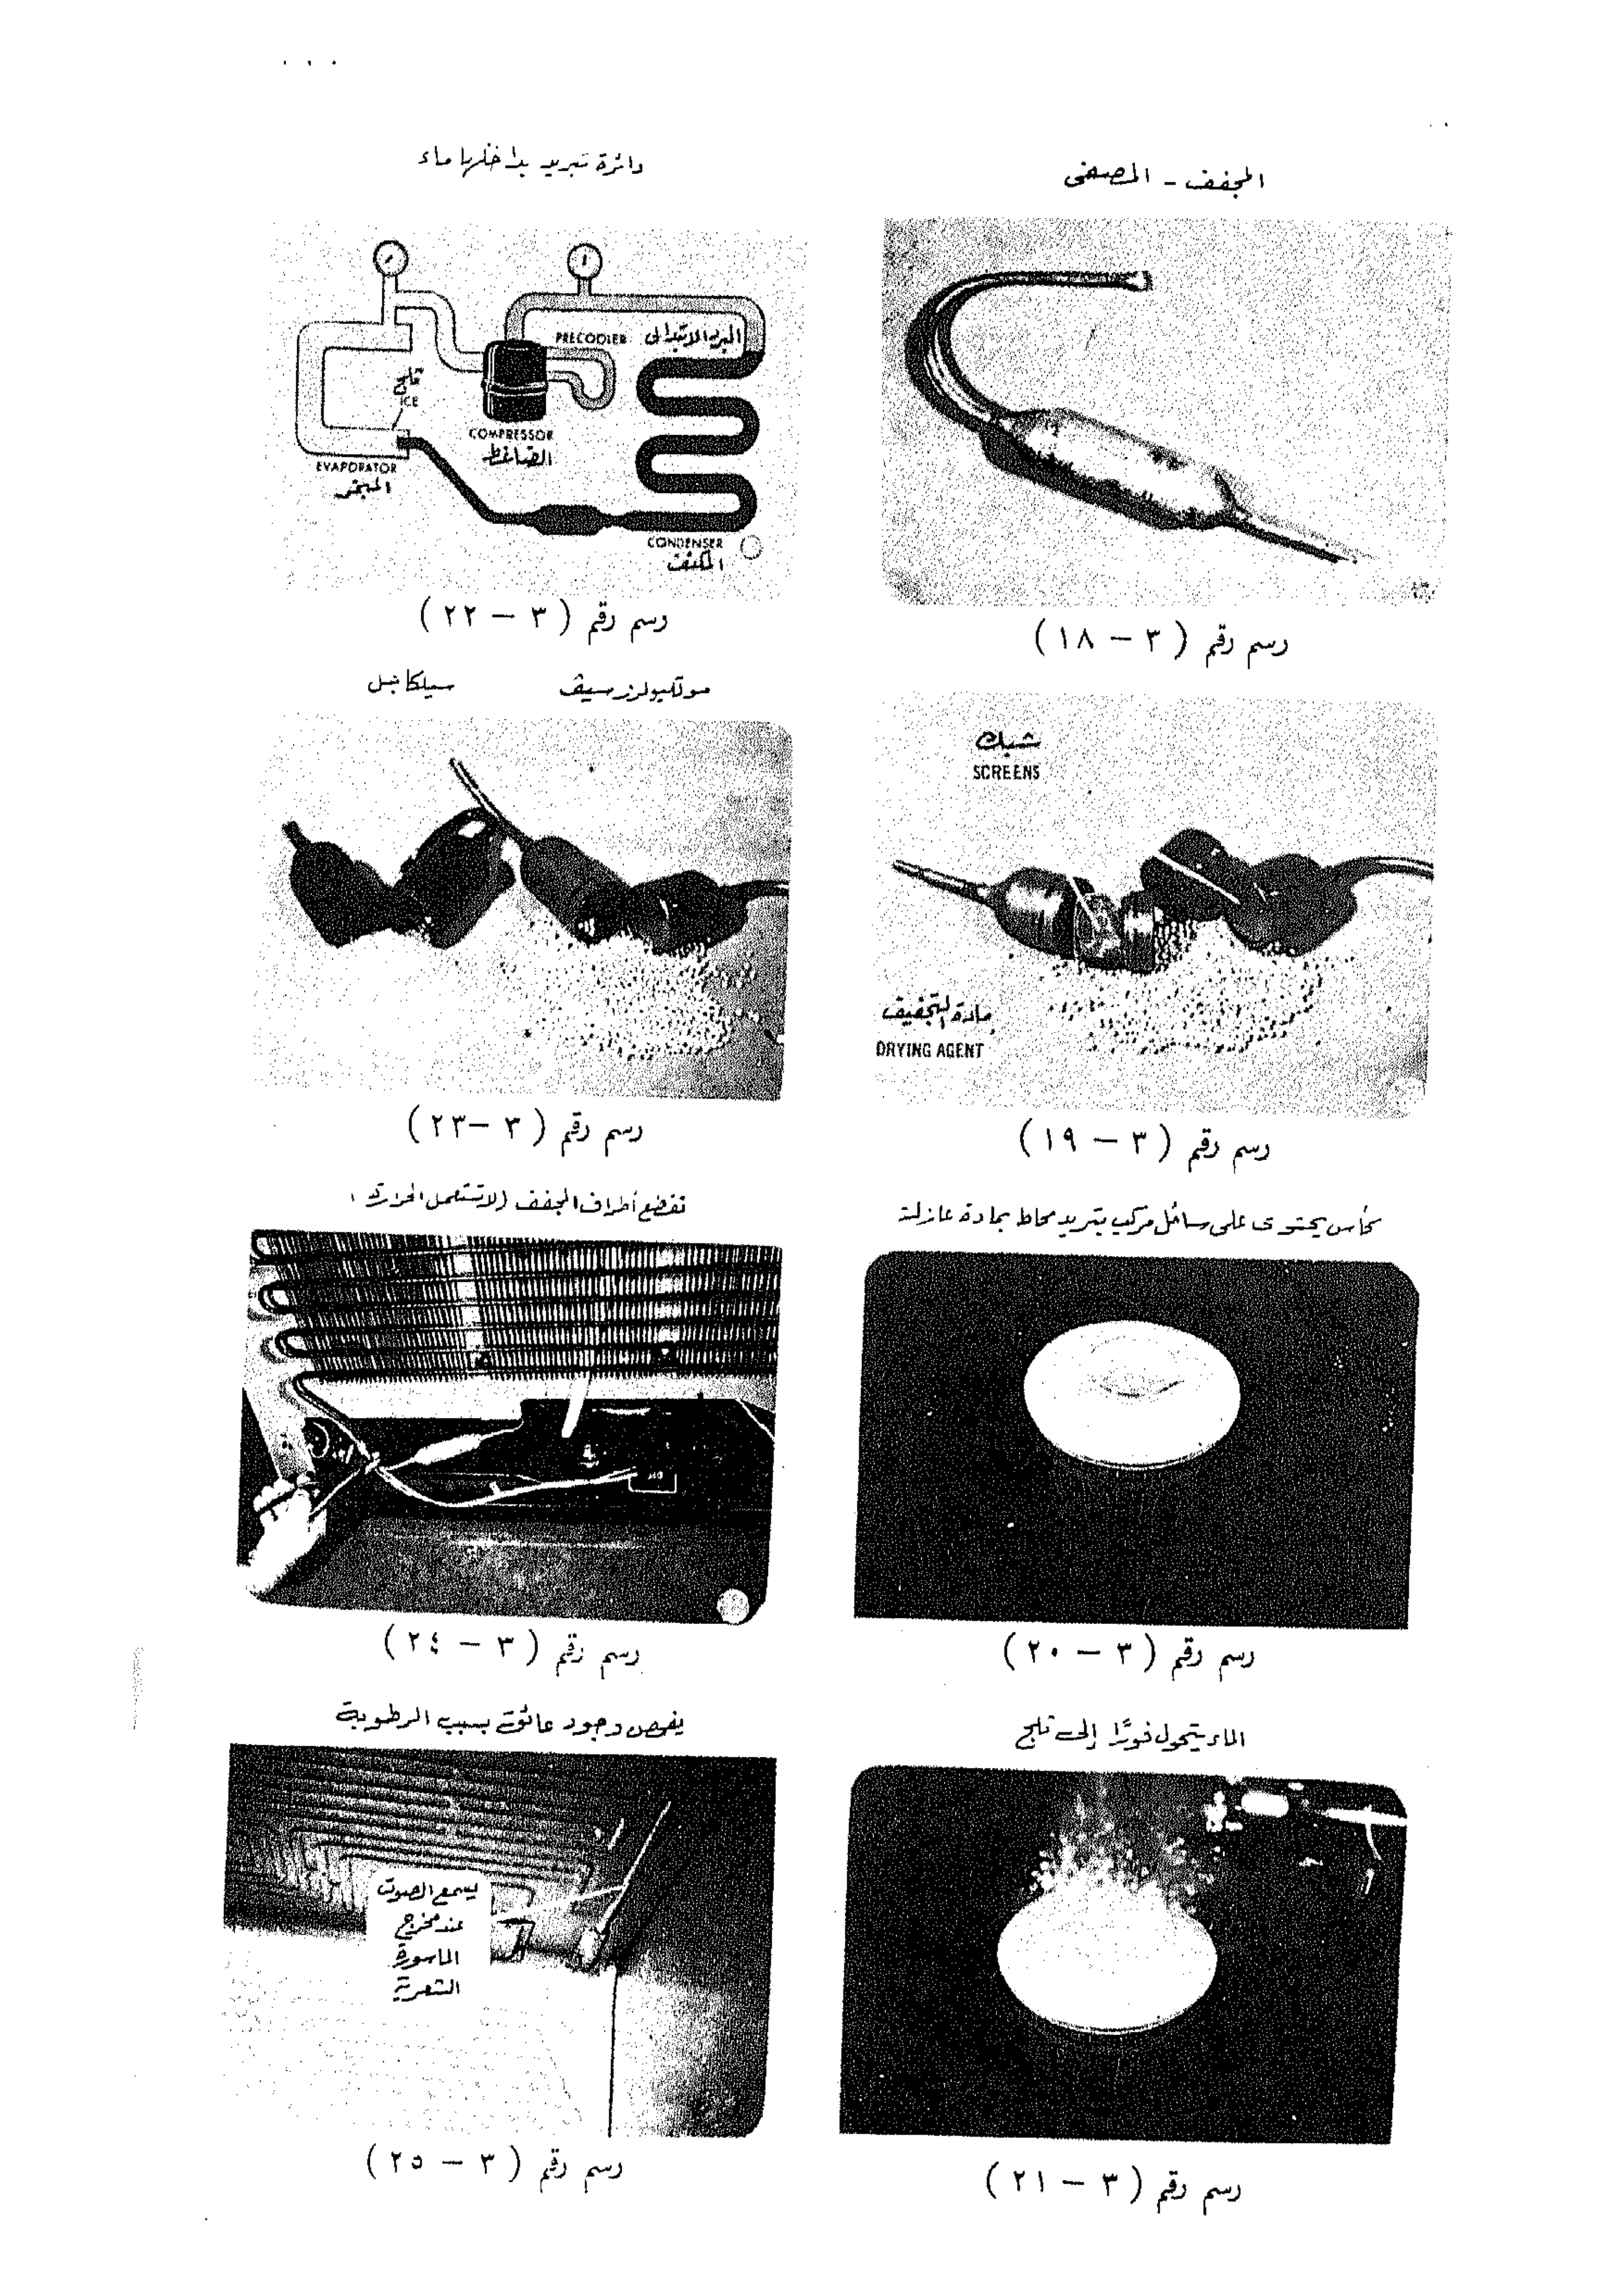 المجفف - المصفى
رسم رقم ( ٣ - ١٨ )
شبك
SCREENS
مادة التجفيف
DRYING AGENT
رسم رقم ( ٣ - ١٩ )
كأس يحتوى على سائل مركب تبريد محاط بمادة عازلة
رسم رقم ( ٣ - ٢٠ )
الماء يتحول فورًا إلى ثلج
رسم رقم ( ٣ - ٢١ )
دائرة تبريد بداخلها ماء
PRECOOLER
المبرد الابتدائى
ثلج
ICE
COMPRESSOR
الضاغط
EVAPORATOR
المبخر
CONDENSER
المكثف
رسم رقم ( ٣ - ٢٢ )
موليكيولرز سيف
سيلكا جل
رسم رقم ( ٣ - ٢٣ )
تقطع أطراف المجفف (لا تستعمل الحرارة)
رسم رقم ( ٣ - ٢٤ )
يفحص وجود عائق بسبب الرطوبة
يسمع الصوت
عند مخرج
الماسورة
الشعرية
رسم رقم ( ٣ - ٢٥ )